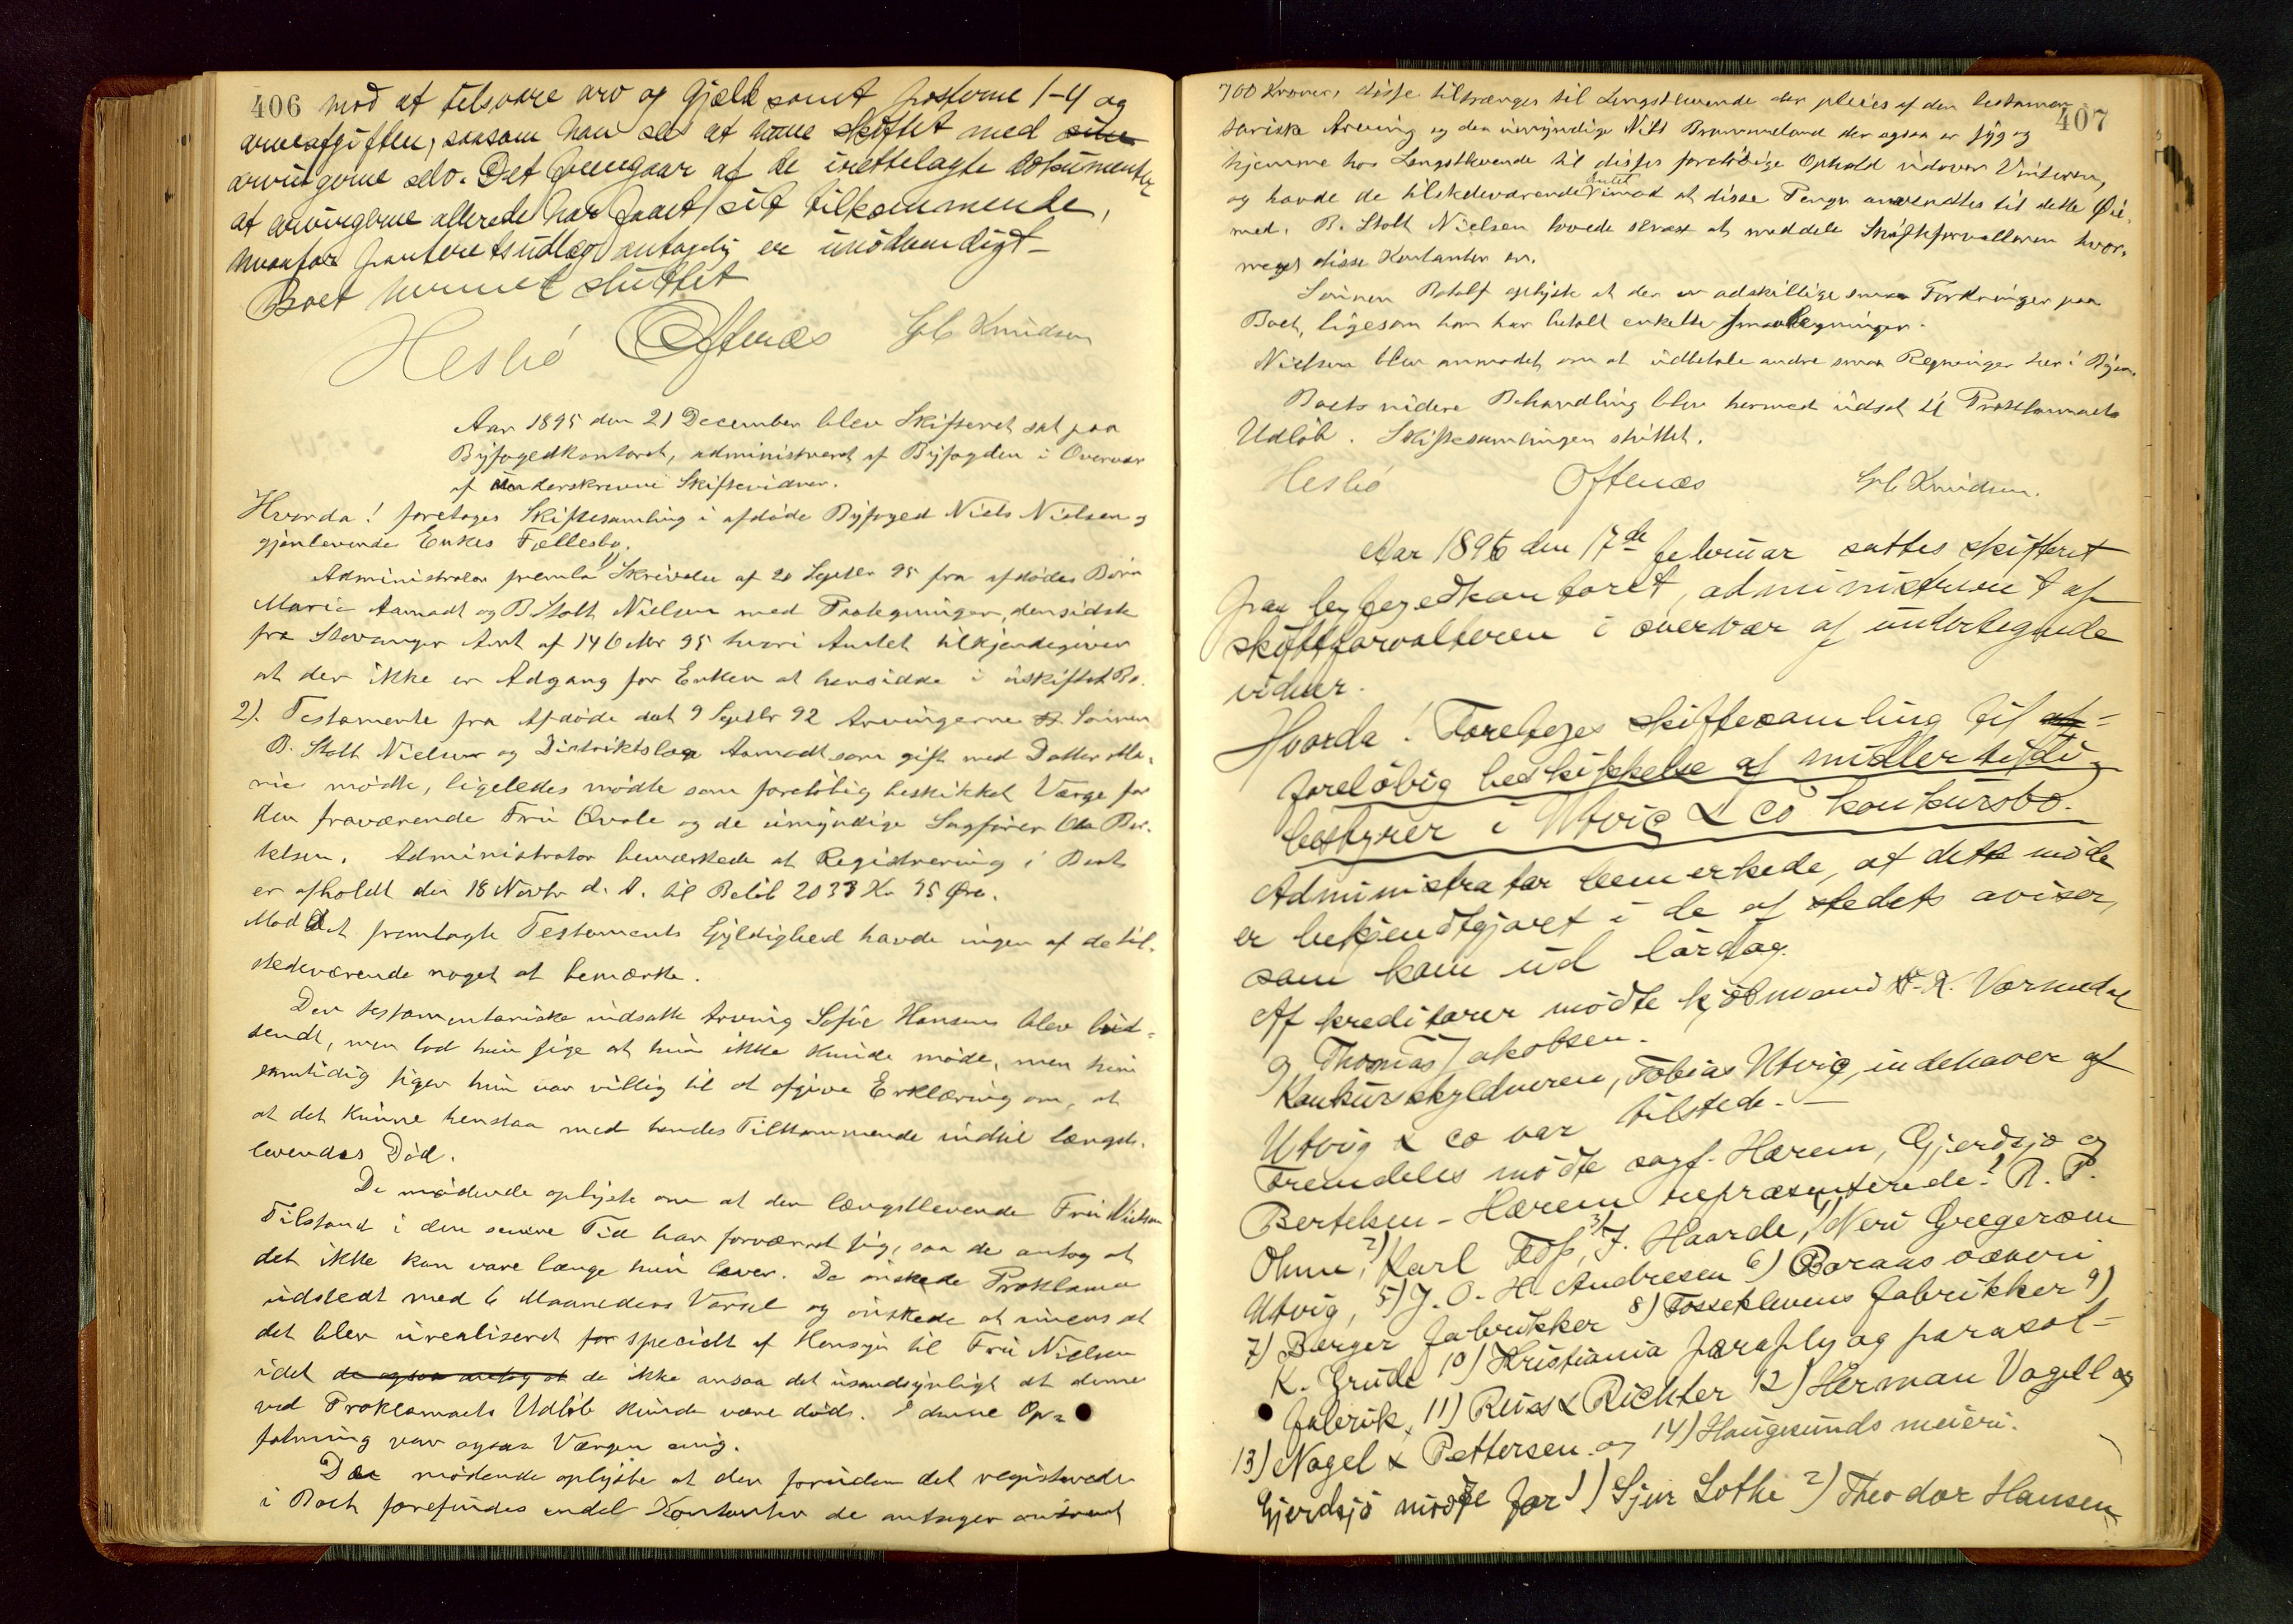 406 mod at tilsvare arv og Gjæld samt posterne 1-4 og
arveafgiften, saasom han sees at have skiftet med sine
arvingerne selv. Det fremgaar af de irettelagte dokumenter
at arvingerne allerede har faaet sit tilkommende,
hvorfor panteretsudlæg antagelig er unødvendigt-
Boet hermed sluttet
Hesbö Oftenæs Knudsen
Aar 1895 den 21 December blev Skifteret sat paa
Byfogedkontoret, administreret af Byfogden i Overvær
af underskrevne Skiftevidner.
Hvorda! foretoges Skiftesamling i afdøde Byfoged Niels Nielsen og
gjenlevende Enkes Fællesbo.
Administrator fremla 1) Skrivelse af 20 Septbr 95 fra afdødes Børn
Marie Aamodt og B Stolt Nielsen med Paategninger, den sidste
fra Stavanger Amt af 14 Oktbr 95 hvori Amtet tilkjendegiver
at der ikke er Adgang for Enken at hensidde i uskiftet Bo.
2). Testamente fra Afdøde dat 9 Septbr 92 Arvingerne Sønnen
B. Stolt Nielsen og Distriktslæge Aamodt som gift med Datter Ma-
rie mødte, ligeledes mødte som foreløbig beskikket Værge for
den fraværende Fru Qvale og de umyndige Sagfører Ber-
telsen. Administrator bemærkede at Registrering i Boet
er afholdt den 18 Novbr d. A. til Beløb 2033 Kr 95 Øre.
Mod Det fremlagte Testaments Gyldighed havde ingen af de til-
stedeværende noget at bemærke.
Den testamentariske indsatte Arving Sofie Hansen blev bud-
sendt, men lod hun sige at hun ikke kunde møde, men hun
samtidig siger hun var villig til at afgive Erklæring om, at
at det kunne henstaa med hendes Tilkommende indtil længst-
levendes Død.
De mødende oplyste om at den længstlevende Fru Nielsen
Tilstand i den senere Tid har forværret sig, saa de antog at
det ikke kan vare længe hun lever. De ønskede Proklama
udstedt med 6 Maaneders Varsel og ønskede at
det blev urealiseret for specielt af Hensyn til Fru Nielsen
idet de ogsaa antog at de ikke ansaa det usandsynligt at denne
ved Proklamaets Udløb kunde være død. I denne Op-
fatning var ogsaa Værgen enig.
De mødende oplyste at der foruden det registrerede
i Boet forefindes endel Kontanter de antager omtrent
407
700 Kroner, disse tiltrænges til Længstlevende der pleies af den testamen-
tariske Arving og den umyndige Nils der ogsaa er syg og
hjemme hos Længstlevende til disses foreløbige Ophold udover Vinteren,
og havde de tilstedeværende intet imod at disse Penge anvendtes til dette Øie-
med. B. Stolt Nielsen lovede senest at meddele Skifteforvalteren hvor-
meget disse Kontanter er.
Sønnen oplyste at der er adskillige smaa Fordringer paa
Boet, ligesom han har betalt enkelte smaa Regninger.
Nielsen blev anmodet om at udbetale andre smaa Regninger her i Byen.
Boets videre Behandling blev hermed udsat til Proklamaets
Udløb. Skiftesamlingen sluttet.
Hesbö Oftenæs Knudsen.
Aar 1896 den 17de februar sattes skifteret
paa byfogedkontoret, administreret af
skifteforvalteren i overvær af undertegnede
vidner.
Hvorda! Foretoges skiftesamling til
foreløbig beskikkelse af midlertidig
bestyrer i Utvig & Co konkursbo.
Administrator bemerkede, at dette møde
er bekjendtgjort i de af stedets aviser,
som kom ud lørdag.
Af kreditorer mødte kjøbmand K. Vormedal
og Thomas Jakobsen.
Konkursskyldneren, Tobias Utvig, indehaver af
Utvig & Co var tilstede. —
Fremdeles mødte sagf. Hærem, Gjerdsjø og
Bertelsen - Hærem repræsenterede: 1) R. P.
Ohm, 2) Karl 3) J. Haarde, 4) Neri Gregersen
Utvig, 5) J. O. H. Andresen 6) Boraas væveri
7) Berger fabrikker 8) Fosseklevens fabrikker 9)
K. Grude 10) Kristiania paraply og parasol-
fabrik, 11) Reis & Richter 12) Herman Vogell og
13) Nagel & Pettersen og 14) Haugesunds meieri.
Gjerdsjø mødte for 1) Sjur Lothe 2) Theodor Hansen